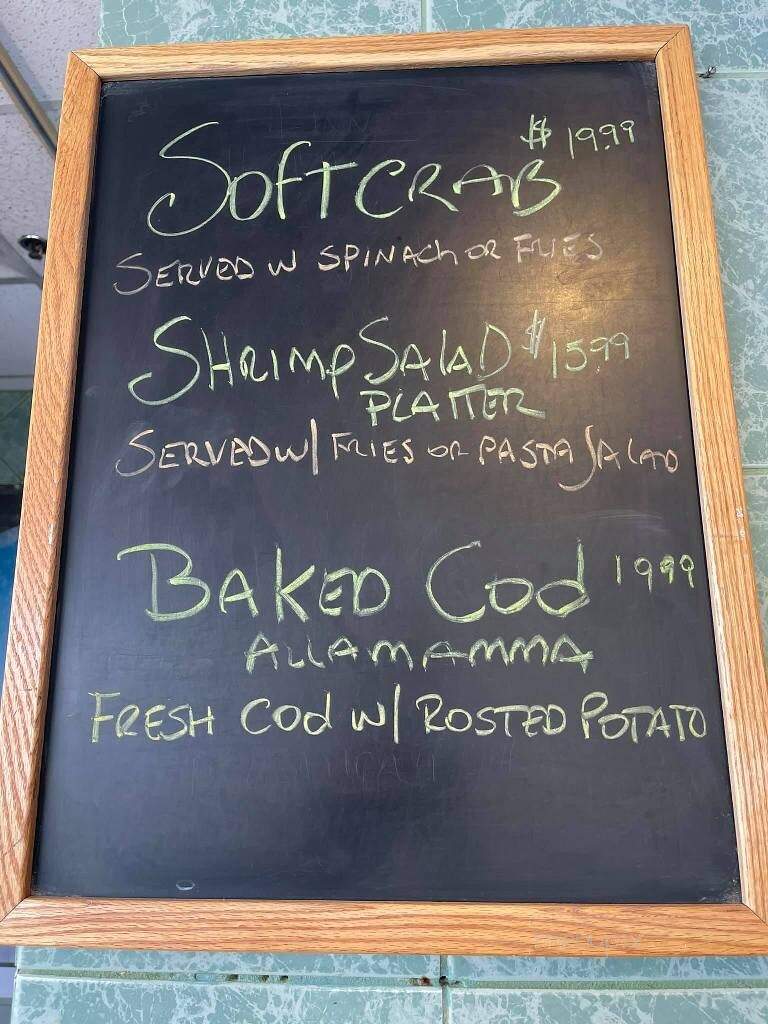 SOFT CRAB $19.99
SERVED W SPINACH OR FRIES
SHRIMP SALAD $15.99
PLATTER
SERVED W/ FRIES OR PASTA SALAD
BAKED COD 19.99
ALLA MAMMA
FRESH COD W/ ROSTED POTATO